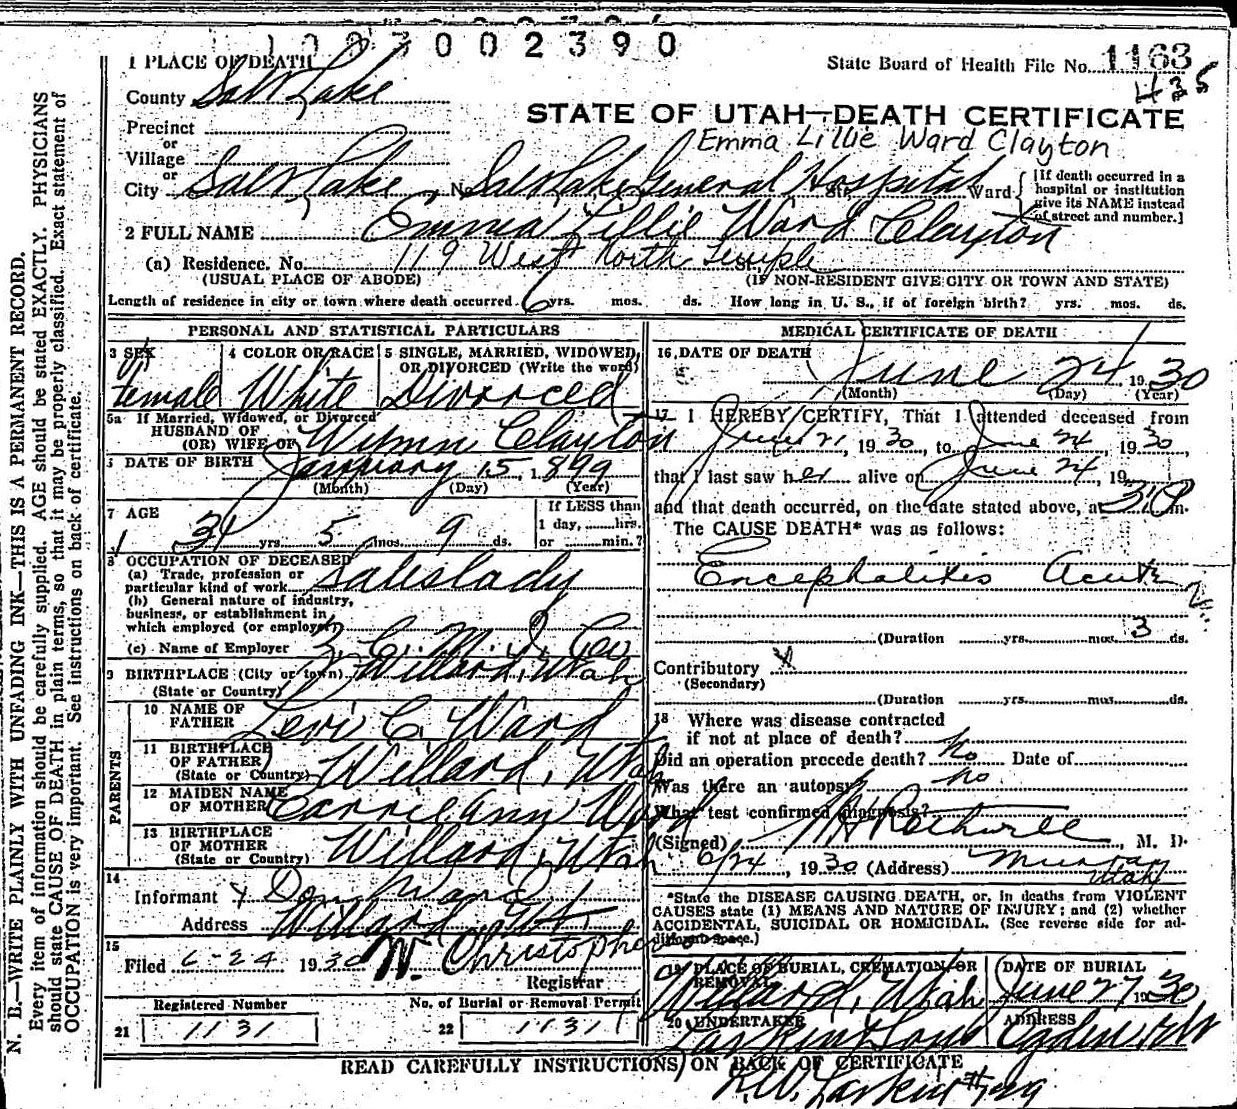 1007000 2390
1 PLACE OF DEATH
State Board of Health File No. 1163
435
County Salt Lake
STATE OF UTAH—DEATH CERTIFICATE
Precinct
or
Emma Lillie Ward Clayton
Village
or
City Salt Lake, No. Salt Lake General Hospital St. Ward
[If death occurred in a hospital or institution give its NAME instead of street and number.]
2 FULL NAME Emma Lillie Ward Clayton
(a) Residence. No. 119 West North Temple St.
(USUAL PLACE OF ABODE) (IF NON-RESIDENT GIVE CITY OR TOWN AND STATE)
Length of residence in city or town where death occurred. 6 yrs. mos. ds. How long in U. S., if of foreign birth? yrs. mos. ds.
PERSONAL AND STATISTICAL PARTICULARS
3 SEX female
4 COLOR OR RACE White
5 SINGLE, MARRIED, WIDOWED, OR DIVORCED (Write the word) Divorced
5a If Married, Widowed, or Divorced
HUSBAND OF
(OR) WIFE OF Clayton
DATE OF BIRTH January 15, 1899
(Month) (Day) (Year)
7 AGE
31 yrs. 5 mos. 9 ds.
If LESS than
1 day, hrs.
or min.?
8 OCCUPATION OF DECEASED
(a) Trade, profession or
particular kind of work Saleslady
(b) General nature of industry,
business, or establishment in
which employed (or employer)
(c) Name of Employer Z. C. M. I. Co
9 BIRTHPLACE (City or town) Willard, Utah
(State or Country)
PARENTS
10 NAME OF FATHER Levi C. Ward
11 BIRTHPLACE OF FATHER (State or Country) Willard, Utah
12 MAIDEN NAME OF MOTHER Carrie Ann
13 BIRTHPLACE OF MOTHER (State or Country) Willard, Utah
14
Informant Ward
Address Willard, Ut
15
Filed 6-24 1930 W. Christopherson
Registrar
Registered Number
21 1131
No. of Burial or Removal Permit
22 1131
MEDICAL CERTIFICATE OF DEATH
16 DATE OF DEATH
June 24 1930
(Month) (Day) (Year)
17 I HEREBY CERTIFY, That I attended deceased from
June 21, 1930, to June 24, 1930,
that I last saw her alive on June 24, 19
and that death occurred, on the date stated above, at m.
The CAUSE DEATH* was as follows:
Encephalitis Acute
(Duration yrs. mos. 3 ds.
Contributory
(Secondary)
(Duration yrs. mos. ds.
18 Where was disease contracted
if not at place of death?
Did an operation precede death? no Date of
Was there an autopsy? no
What test confirmed diagnosis?
(Signed) Rothwell, M. D.
6/24, 1930 (Address) Murray Utah
*State the DISEASE CAUSING DEATH, or, in deaths from VIOLENT
CAUSES state (1) MEANS AND NATURE OF INJURY; and (2) whether
ACCIDENTAL, SUICIDAL OR HOMICIDAL. (See reverse side for ad-
ditional space.)
19 PLACE OF BURIAL, CREMATION OR REMOVAL
Willard, Utah
DATE OF BURIAL
June 27 1930
20 UNDERTAKER
Larkin & Sons
ADDRESS
Ogden Ut
READ CAREFULLY INSTRUCTIONS ON BACK OF CERTIFICATE
Larkin
N. B.—WRITE PLAINLY WITH UNFADING INK—THIS IS A PERMANENT RECORD.
Every item of information should be carefully supplied. AGE should be stated EXACTLY. PHYSICIANS
should state CAUSE OF DEATH in plain terms, so that it may be properly classified. Exact statement of
OCCUPATION is very important. See instructions on back of certificate.